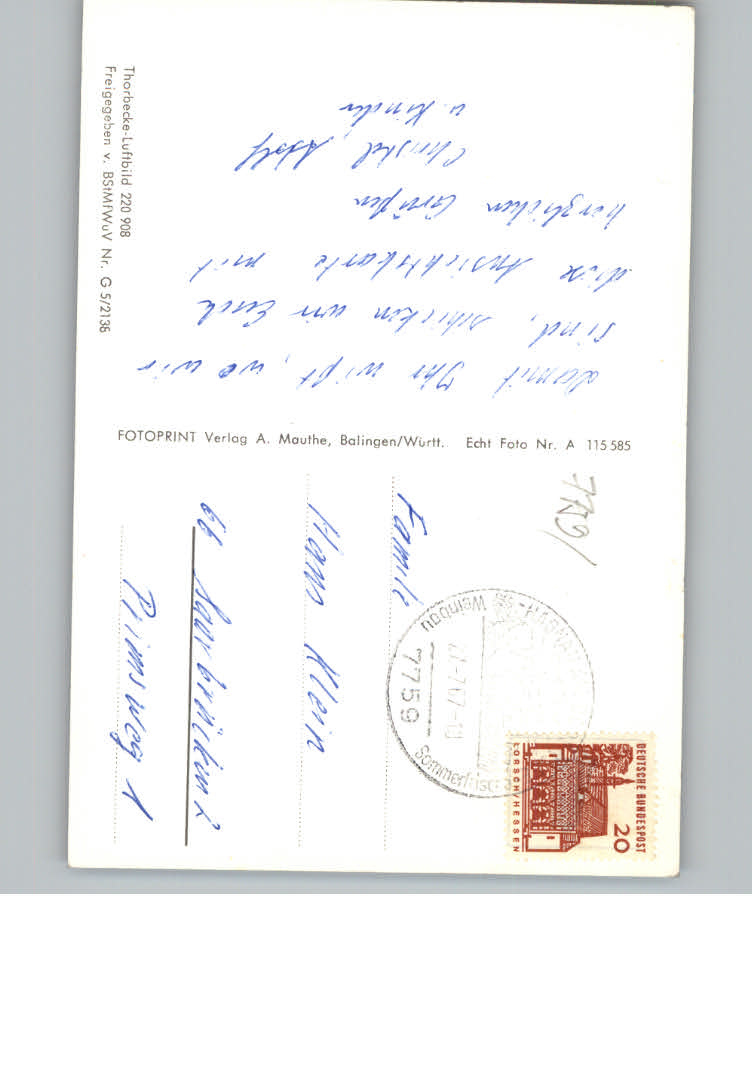 damit Ihr wißt, wo wir
sind, schicken wir Euch
diese Ansichtskarte mit
herzlichen Grüßen
Christel, Adolf
u. Kinder
Thorbecke-Luftbild 220 908
Freigegeben v. BStMfWuV Nr. G 5/2136
FOTOPRINT Verlag A. Mauthe, Balingen/Württ. Echt Foto Nr. A 115 585
7759/
HAGNAU
Weinbau
7759
Sommerfrisch
DEUTSCHE BUNDESPOST
20
LORSCH/HESSEN
Familie
Hans Klein
66 Saarbrücken 2
Primsweg 1